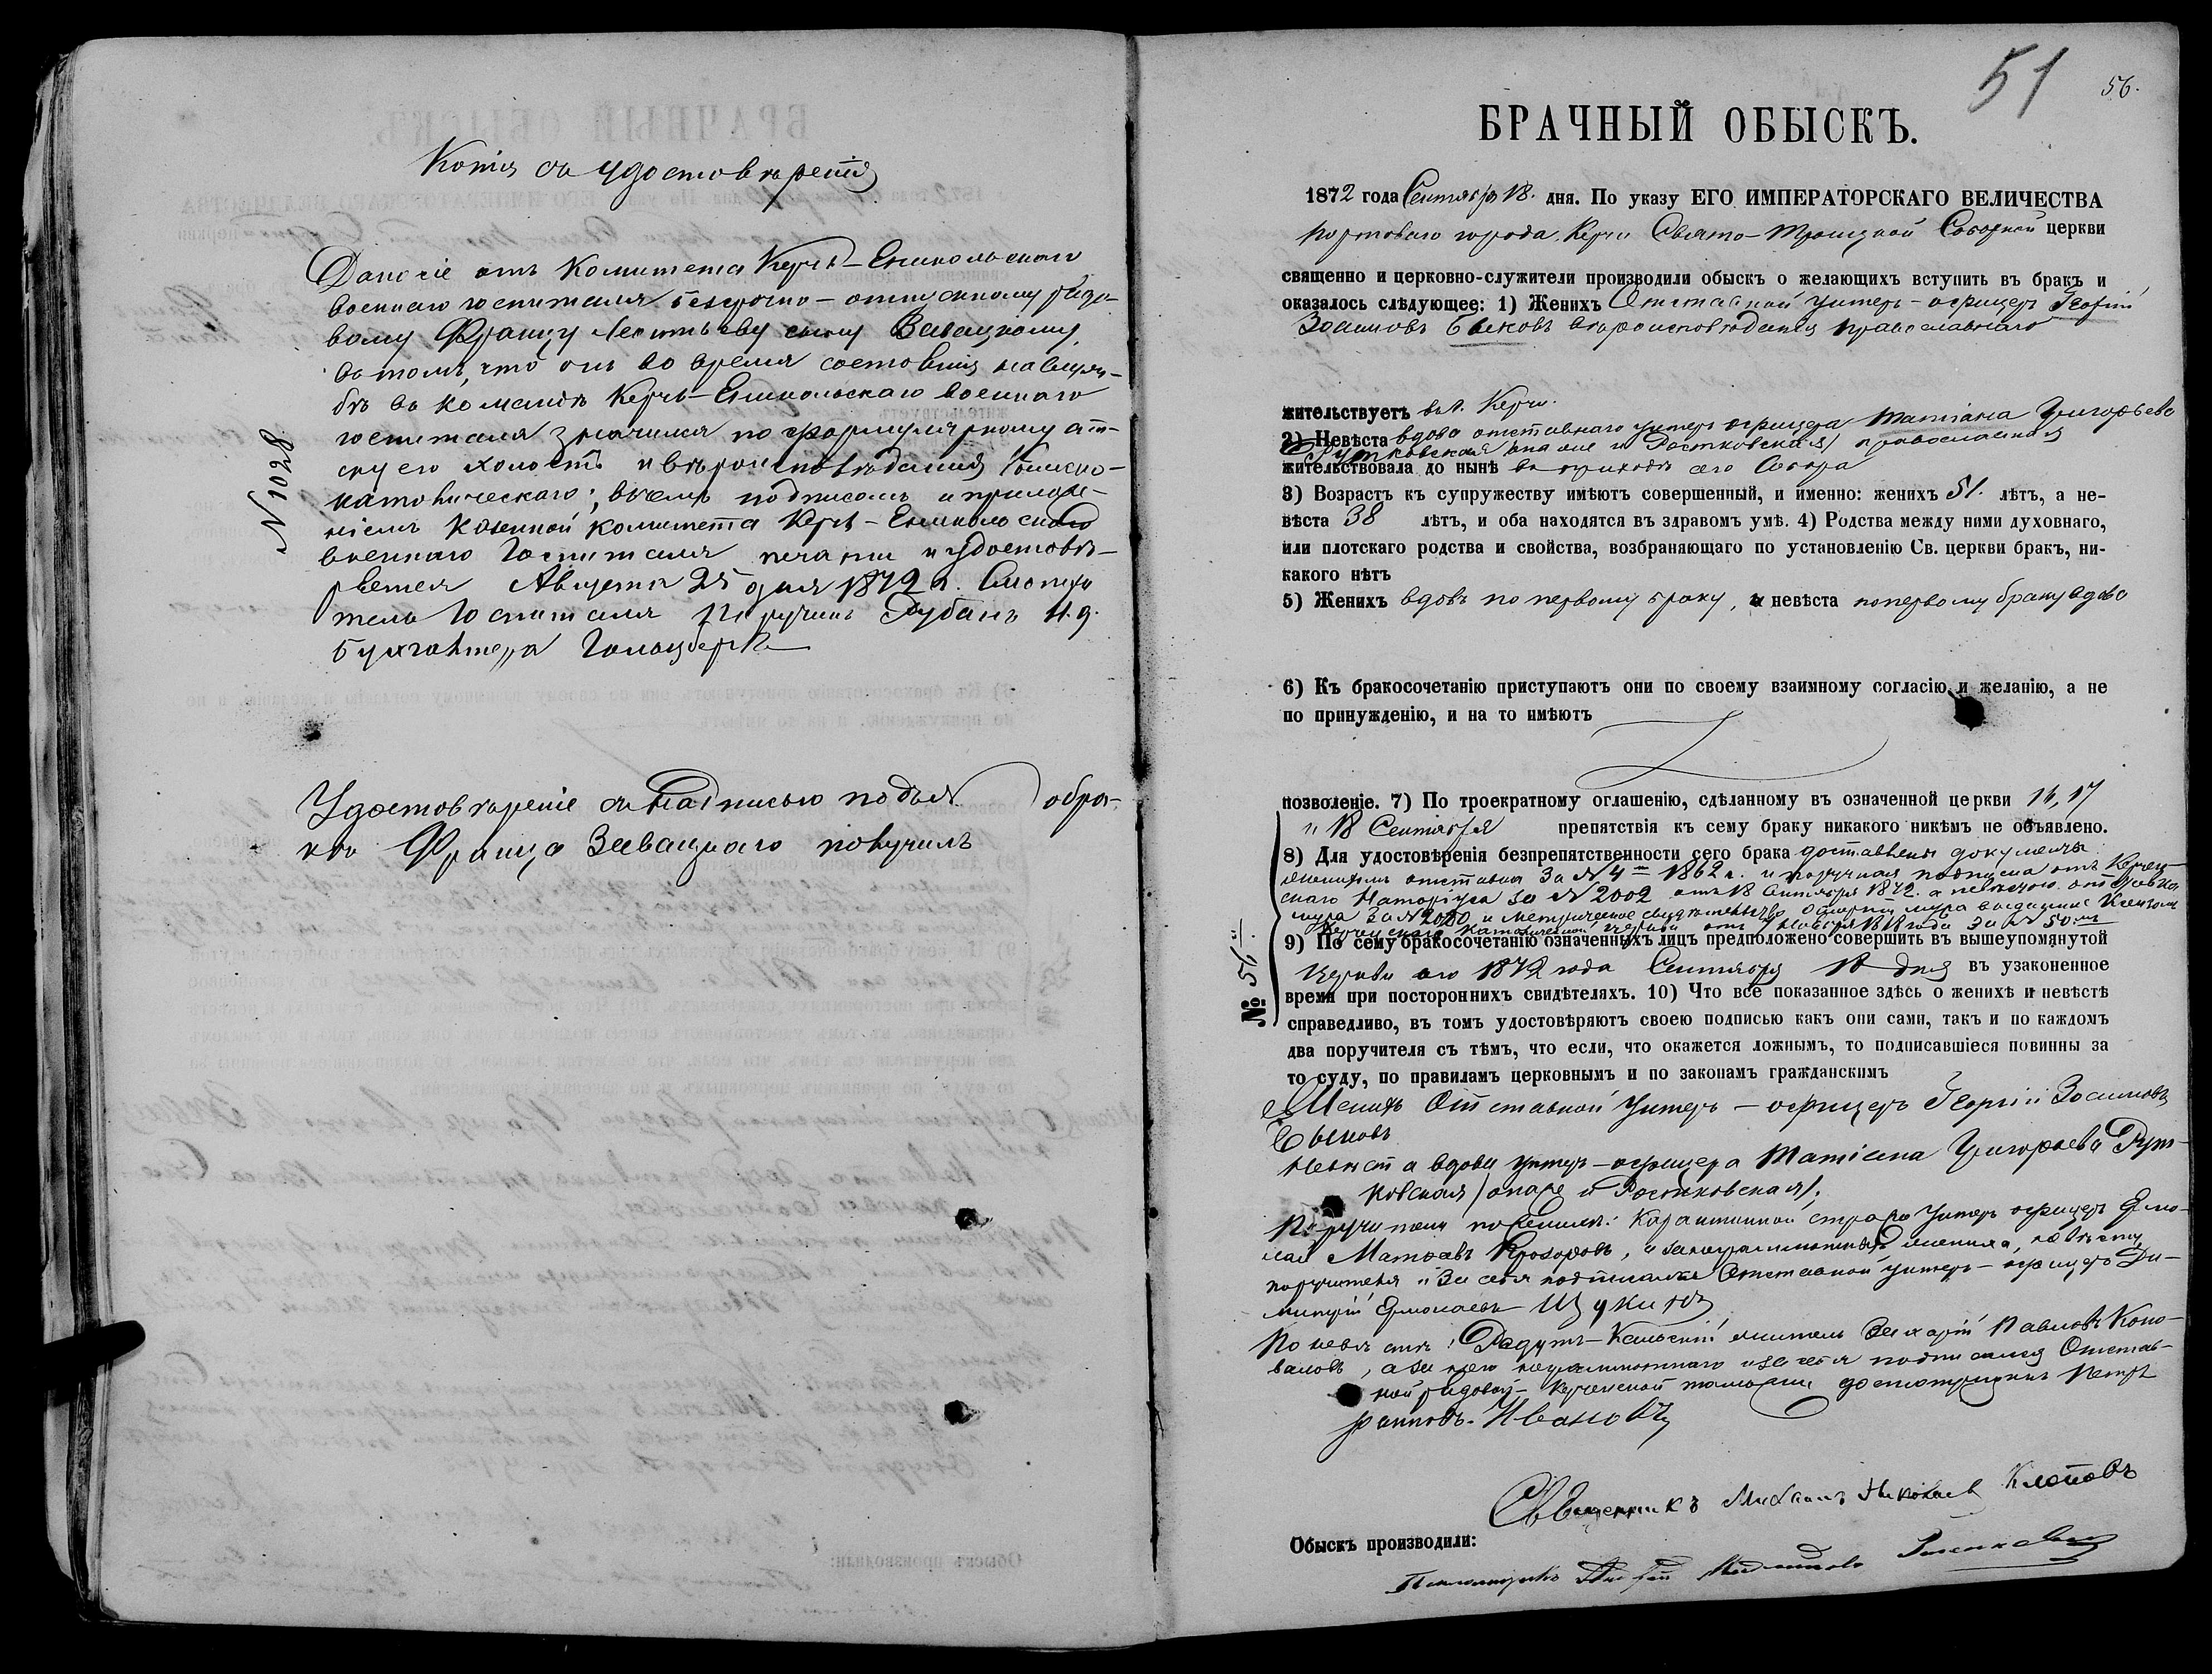 Копія съ удостовѣренія
Дано сіе отъ Комитета Керчь-Еникольскаго
военнаго госпиталя безсрочно-отпускному рядо-
вому Францу Леонтьеву сыну Завацкому
въ томъ, что онъ во время состоянія на служ-
бѣ въ командѣ Керчь-Еникольскаго военнаго
госпиталя значился по формулярному спи-
ску его холостъ и вѣроисповѣданія Римско-
католическаго; въ чемъ подписомъ и приложе-
ніемъ казенной комитета Керчь-Еникольскаго
военнаго Госпиталя печати и удостовѣ-
ряется Августа 25 дня 1872 г. Смотри-
тель Госпиталя Поручикъ Рубанъ И. д.
Бухгалтера
№ 1028
Удостовѣреніе съ надписью подъ обра-
тно Францъ Завацкаго получилъ
51
56.
БРАЧНЫЙ ОБЫСКЪ.
1872 года Сентября 18. дня. По указу ЕГО ИМПЕРАТОРСКАГО ВЕЛИЧЕСТВА
портоваго города Керчи Свято-Троицкой Соборной церкви
священно и церковно-служители производили обыскъ о желающихъ вступить въ бракъ и
оказалось слѣдующее: 1) Женихъ Отставной унтеръ-офицеръ Георгій
Зосимовъ Быковъ вѣроисповѣданія православнаго
жительствуетъ въ г. Керчи.
2) Невѣста вдова отставнаго унтеръ офицера Татіана Григорьева
Рутковская (она же и Ростковская) православная
жительствовала до нынѣ въ приходѣ сего Собора
3) Возрастъ къ супружеству имѣютъ совершенный, и именно: женихъ 51. лѣтъ, а не-
вѣста 38 лѣтъ, и оба находятся въ здравомъ умѣ. 4) Родства между ними духовнаго,
или плотскаго родства и свойства, возбраняющаго по установленію Св. церкви бракъ, ни-
какого нѣтъ
5) Женихъ вдовъ по первому браку, а невѣста по первому браку вдова
6) Къ бракосочетанію приступаютъ они по своему взаимному согласію и желанію, а не
по принужденію, и на то имѣютъ
позволеніе. 7) По троекратному оглашенію, сдѣланному въ означенной церкви 16, 17
и 18 Сентября препятствія къ сему браку никакого никѣмъ не объявлено.
8) Для удостовѣренія безпрепятственности сего брака доставлены документы
женихомъ отставка за № 4 1862 г. и поручная подписка отъ Керчен-
скаго Нотаріуса за № 2002 отъ 18 Сентября 1872. а невѣстою
мужа за № 2080 и метрическое свидѣтельство о смерти мужа выданное
Керченской Католической церкви отъ года за № 50.
9) По сему бракосочетанію означенныхъ лицъ предположено совершить въ вышеупомянутой
церкви сего 1872 года Сентября 18 дня въ узаконенное
время при постороннихъ свидѣтеляхъ. 10) Что все показанное здѣсь о женихѣ и невѣстѣ
справедливо, въ томъ удостовѣряютъ своею подписью какъ они сами, такъ и по каждомъ
два поручителя съ тѣмъ, что если, что окажется ложнымъ, то подписавшіеся повинны за
то суду, по правиламъ церковнымъ и по законамъ гражданскимъ
№ 51
Женихъ Отставной Унтеръ-офицеръ Георгій Зосимовъ
Быковъ
Невѣста вдова унтеръ-офицера Татіана Григорьева Рут-
ковская (она же и Ростковская).
Поручители по женихѣ: Карантинной стражи Унтеръ офицеръ Ермо-
лай Матвѣевъ Прохоровъ, а за неграмотныхъ жениха, невѣсту
поручителя и за себя подписался Отставной унтеръ-офицеръ Ди-
митрій Ермолаевъ Щукинъ
По невѣстѣ: Редутъ-Кальскій житель Захарій Павловъ Коно-
валовъ, а за него неграмотнаго и за себя подписался Отстав-
ной рядовой Керченской таможни досмотрщикъ Петръ
Ивановъ
Священникъ Михаилъ Николаевъ Клоповъ
Обыскъ производили: